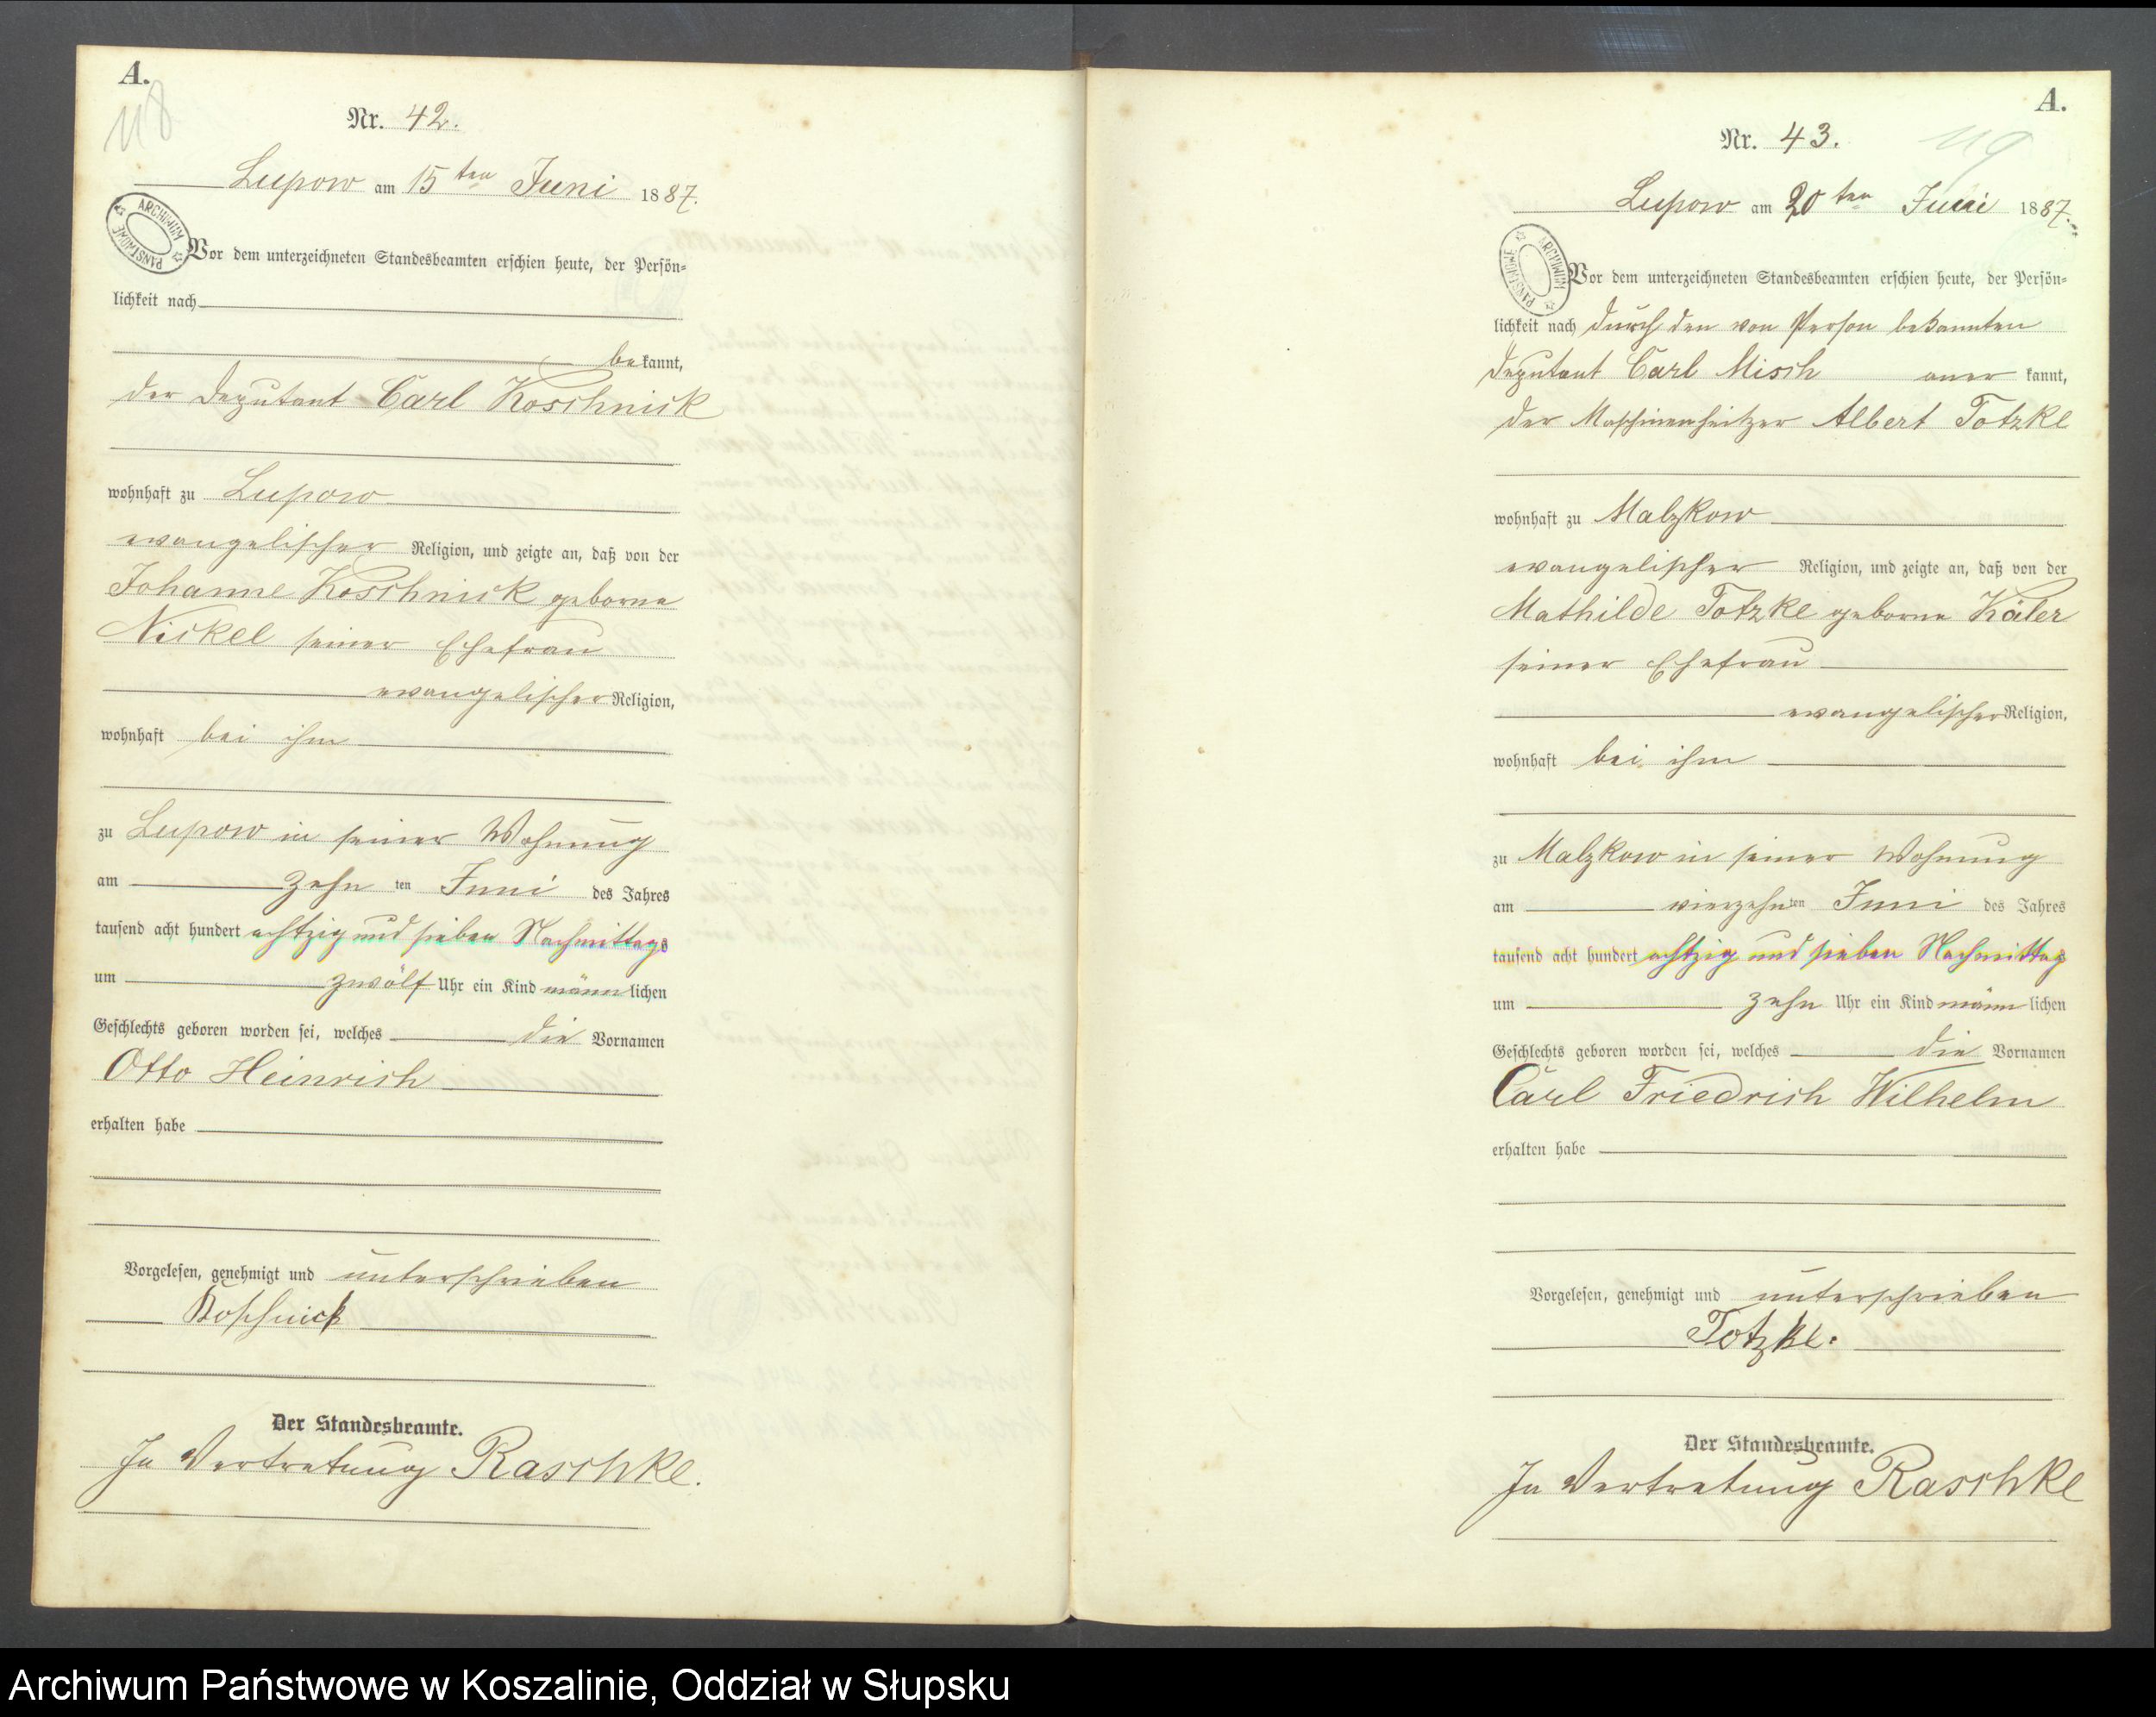 A.
118
Nr. 42.
Lupow am 15ten Juni 1887.
ARCHIWUM PAŃSTWOWE
Vor dem unterzeichneten Standesbeamten erschien heute, der Persön-
lichkeit nach
bekannt,
der Deputant Carl Koschnick
wohnhaft zu Lupow
evangelischer Religion, und zeigte an, daß von der
Johanne Koschnick geborne
Nickel seiner Ehefrau
evangelischer Religion,
wohnhaft bei ihm
zu Lupow in seiner Wohnung
am zehnten Juni des Jahres
tausend acht hundert achtzig und sieben Nachmittags
um zwölf Uhr ein Kind männlichen
Geschlechts geboren worden sei, welches die Vornamen
Otto Heinrich
erhalten habe
Vorgelesen, genehmigt und unterschrieben
Koschnick
Der Standesbeamte.
In Vertretung Raschke.
A.
119
Nr. 43.
Lupow am 20ten Juni 1887.
ARCHIWUM PAŃSTWOWE
Vor dem unterzeichneten Standesbeamten erschien heute, der Persön-
lichkeit nach durch den von Person bekannten
Deputant Carl Misch anerkannt,
der Maschinenheitzer Albert Totzke
wohnhaft zu Malzkow
evangelischer Religion, und zeigte an, daß von der
Mathilde Totzke geborne Käler
seiner Ehefrau
evangelischer Religion,
wohnhaft bei ihm
zu Malzkow in seiner Wohnung
am vierzehnten Juni des Jahres
tausend acht hundert achtzig und sieben Nachmittag
um zehn Uhr ein Kind männlichen
Geschlechts geboren worden sei, welches die Vornamen
Carl Friedrich Wilhelm
erhalten habe
Vorgelesen, genehmigt und unterschrieben
Totzke.
Der Standesbeamte.
In Vertretung Raschke
Archiwum Państwowe w Koszalinie, Oddział w Słupsku